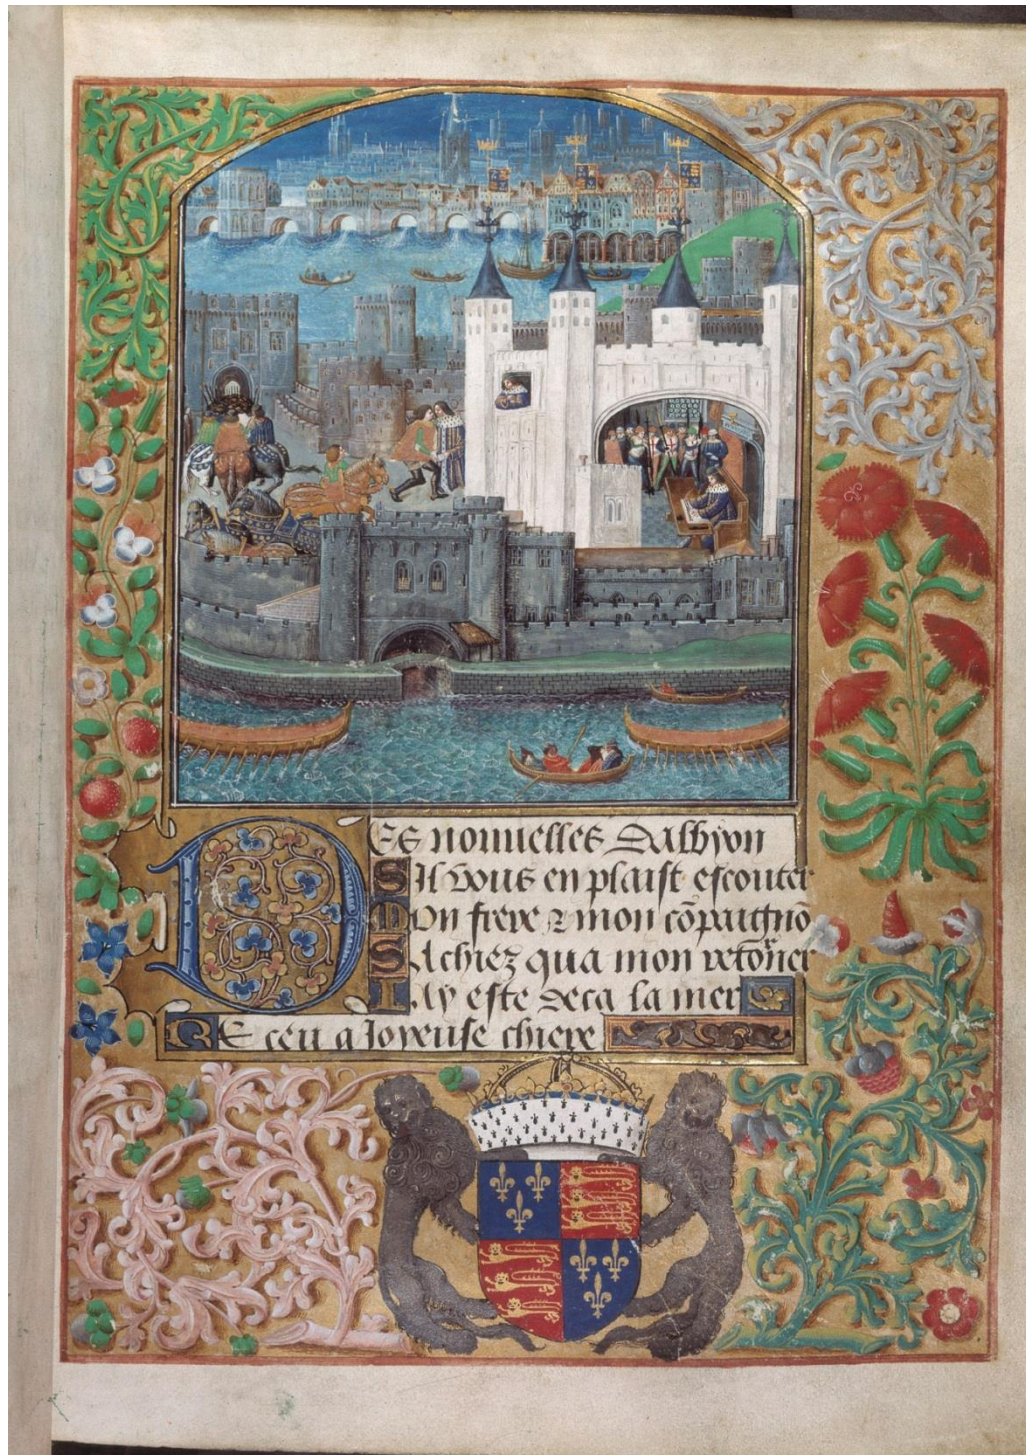 Des nouuelles Dalbyon
Sil vous en plaist escouter
Mon frere & mon cōpaignō
Sachiez qua mon retor̄ner
Iay este deca la mer
Receu a Ioyeuse chiere